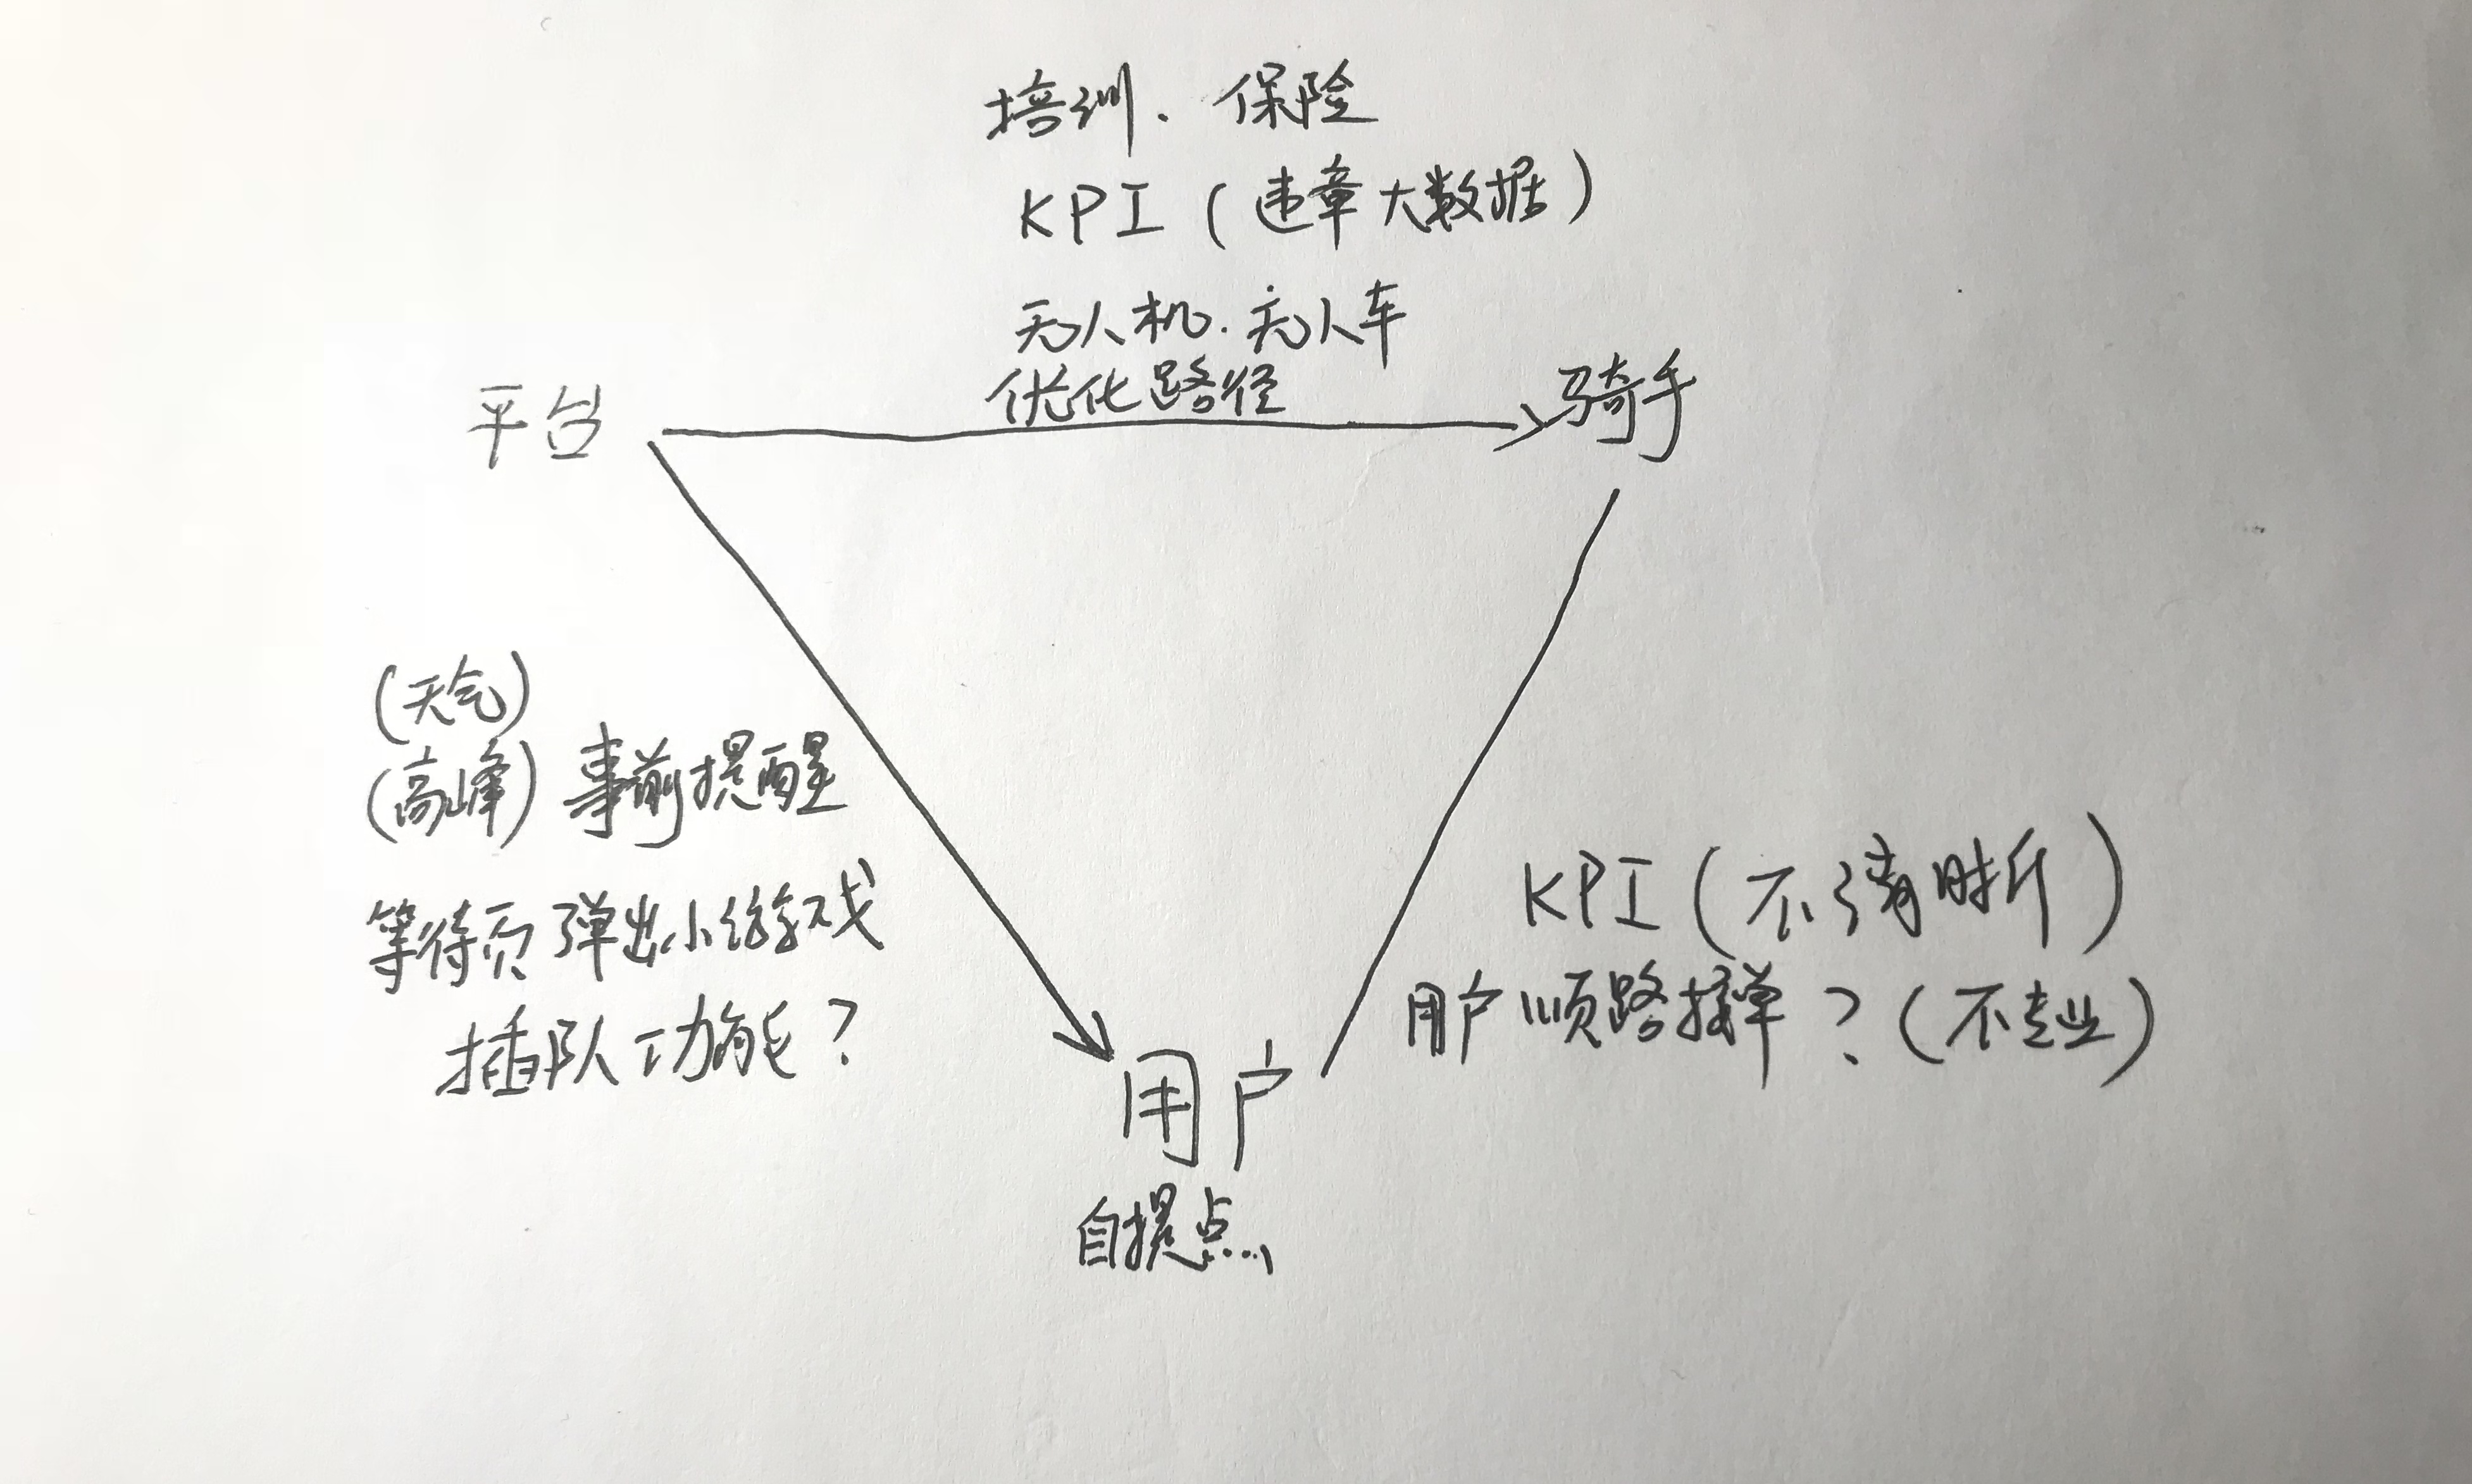 培训、保险
KPI(违章大数据)
无人机、无人车
优化路径
平台
骑手
(天气)
(高峰)事前提醒
等待页弹出小游戏
插队功能?
KPI(不清晰)
用户顺路接单?(不专业)
用户
自提点